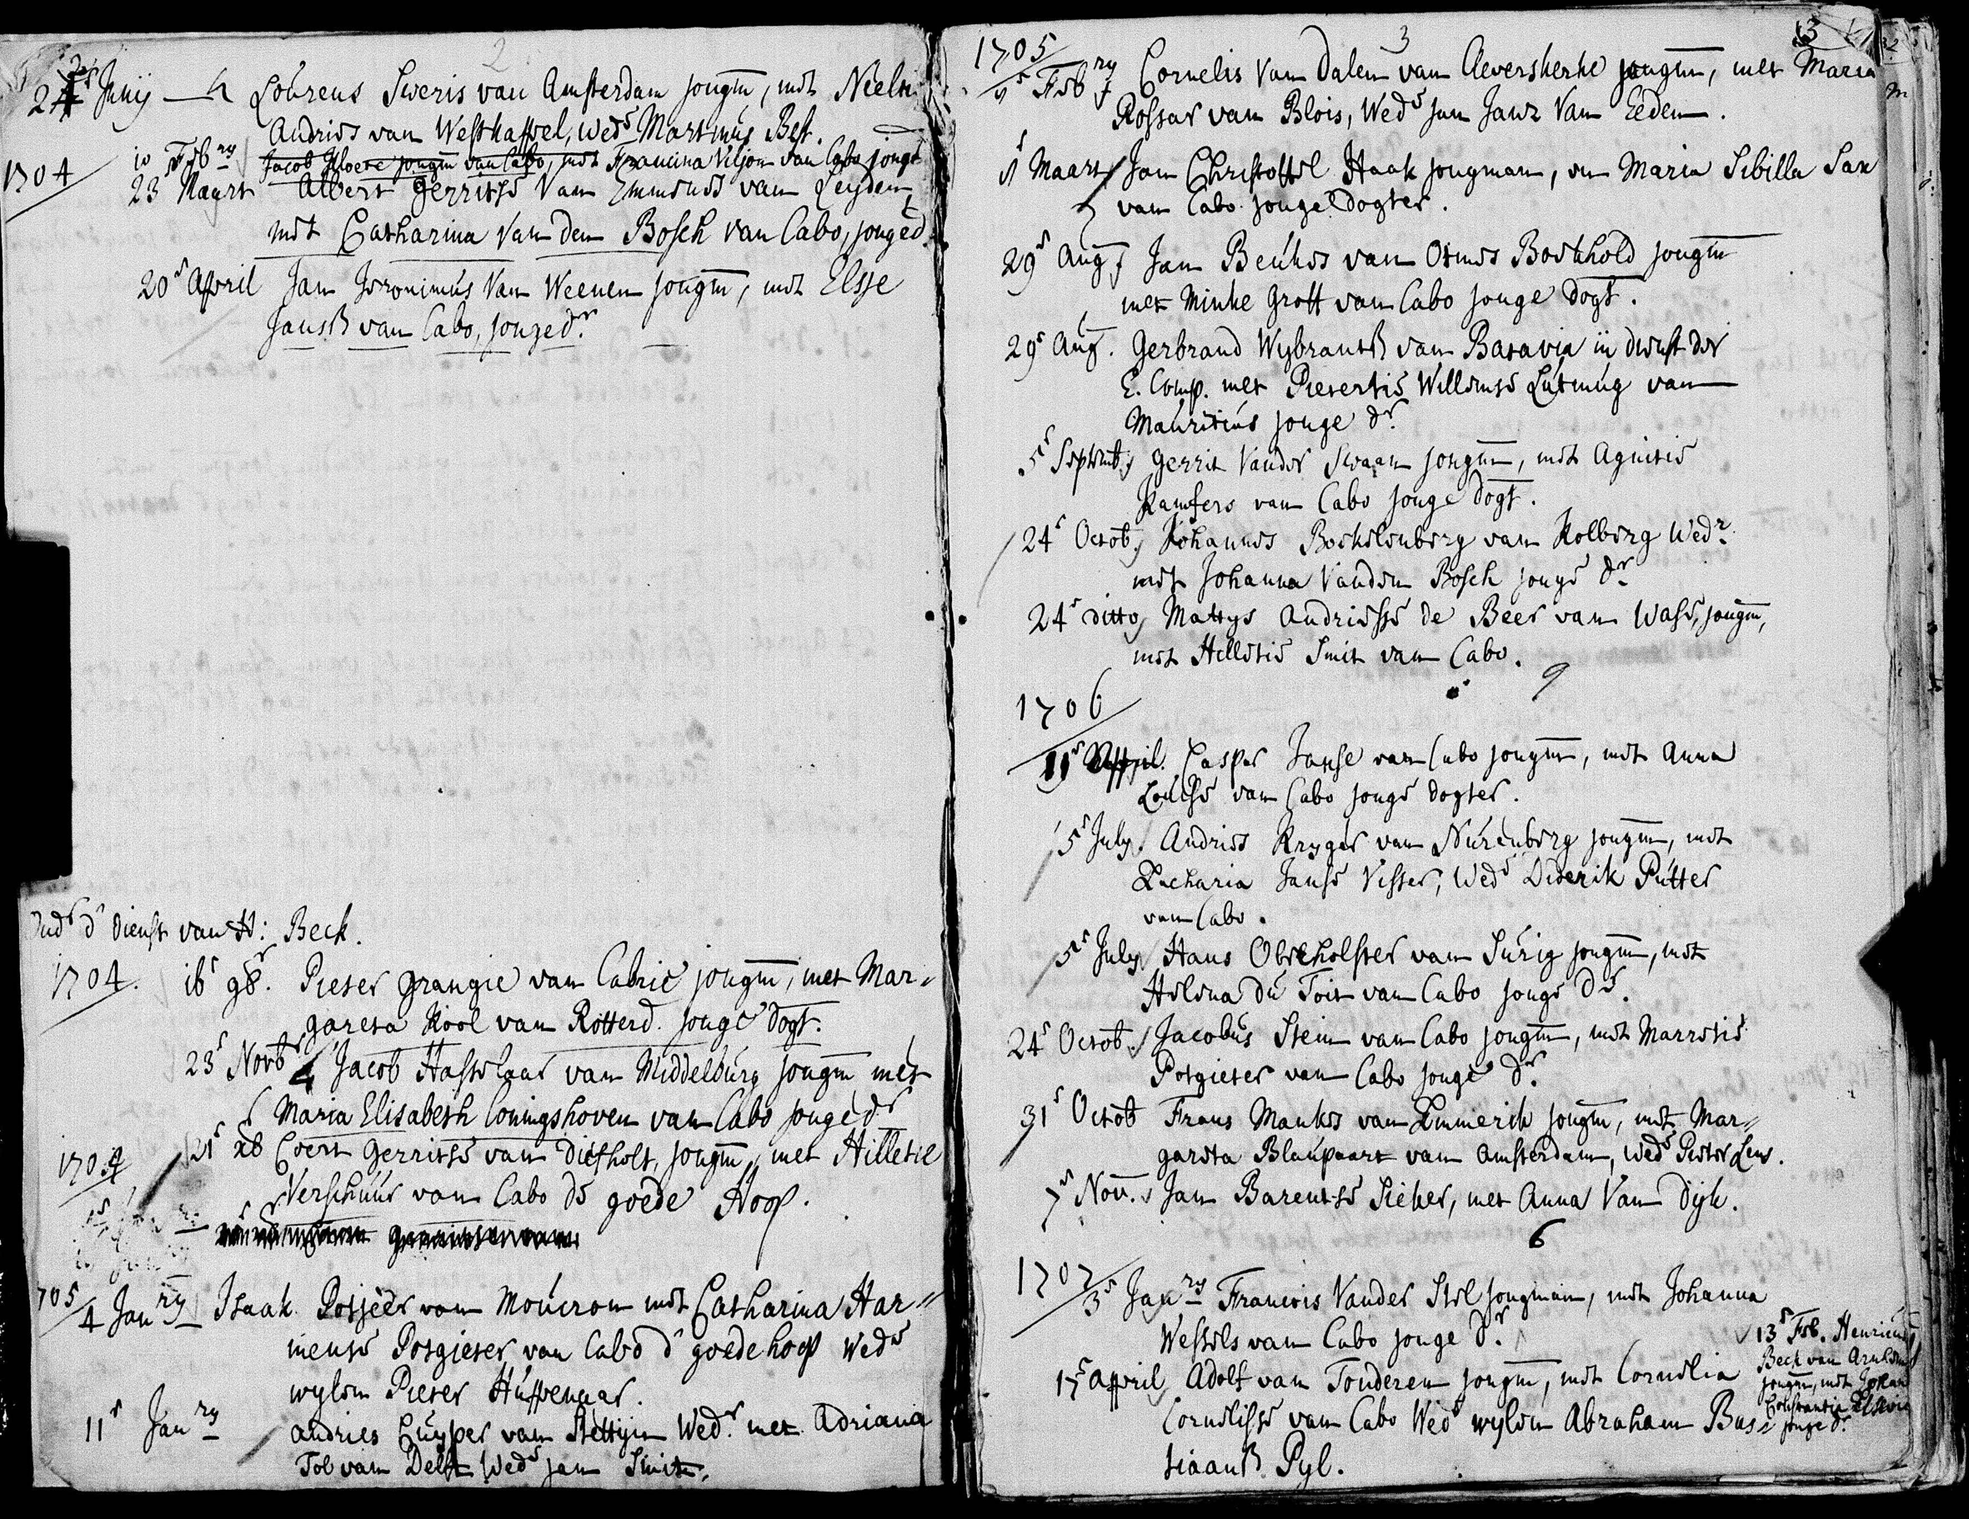 2
24 Junij Lourens Sweris van Amsterdam jongm, met Neeltie
Andries van Westkappel, wede Martinus Best.
1704
10 Febry Jacob Kloete jongm van Cabo, met Francina Viljon van Cabo jonged
23 Maart Albert Gerritse Van Emmenes van Leyden,
met Catharina Van den Bosch van Cabo, jonged.
20e April Jan Jeronimus Van Weenen jongm, met Elsje
Jansz van Cabo, jongedr
Ondr de dienst van H: Beck.
1704. 16e 9br. Pieter Grangie van Cabrie jongm, met Mar=
gareta Kool van Rotterd. jonge dogt.
23e Novbr Jacob Hasselaar van Middelburg jongm met
Maria Elisabeth Coningshoven van Cabo jongedr
1704 21e xbr Coert Gerritse van Diefholt, jongm, met Hilletie
Verschuur van Cabo de goede Hoop.
1705
4 Janry Isaak Potjeer van Moucron met Catharina Har=
mense Potgieter van Cabo de goede hoop Wede
wylen Pieter Huffenaar.
11e Janry Andries Cuyper van Stettijn Wedr. met Adriana
Tol van Delft Wede Jan Smit.
3
13
1705
Febry Cornelis Van Dalen van Aeverskerke jongm, met Maria
Rossar van Blois, Wede Jan Janz Van Eeden.
Maart Jan Christoffel Haak jongman, en Maria Sibilla Sax
van Cabo jonge Dogter.
29e Aug Jan Beukes van Otmes Bockhold jongm
met Minke Grott van Cabo jonge dogt.
29e Aug. Gerbrand Wybrantsz van Batavia in dienst der
E. Comp. met Pietertie Willemse Lutming van
Mauritius jonge dr.
5e Septemb. Gerrit Vander Swaan jongm, met Agnitie
Kamfers van Cabo jonge dogt.
24e Octob. Johannes Bockelenberg van Kolberg Wedr.
met Johanna Vanden Bosch jonge dr
24e ditto, Mattys Andriesse de Beer van Wase, jongm,
met Hilletie Smit van Cabo.
9
1706
11e April. Casper Janse van Cabo jongm, met Anna
Louise van Cabo jonge dogter.
5e July. Andries Kryger van Nurenberg jongm, met
Zacharia Janse Visser, Wede Diderik Putter
van Cabo.
5e July Hans Oberholster van Surig jongm, met
Helena du Toit van Cabo jonge dr.
24e Octob. Jacobus Stein van Cabo jongm, met Marretie
Potgieter van Cabo jonge dr.
31e Octob Frans Mankes van Emmerik jongm, met Mar=
gareta Blaupaart van Amsterdam, Wede Pieter Lens.
7e Nov. Jan Barentse Sieker, met Anna Van Dijk.
6
1707
3e Janry Francois Vander Stel jongman, met Johanna
Wessels van Cabo jonge dr.
13e Feb. Henricus
Beck van Arnhem
jongm, met Johan
Constantia Elsevie
jonge dr.
17e April Adolf van Tonderen jongm, met Cornelia
Cornelisse van Cabo Wede wylen Abraham Bas=
tiaansz Pyl.